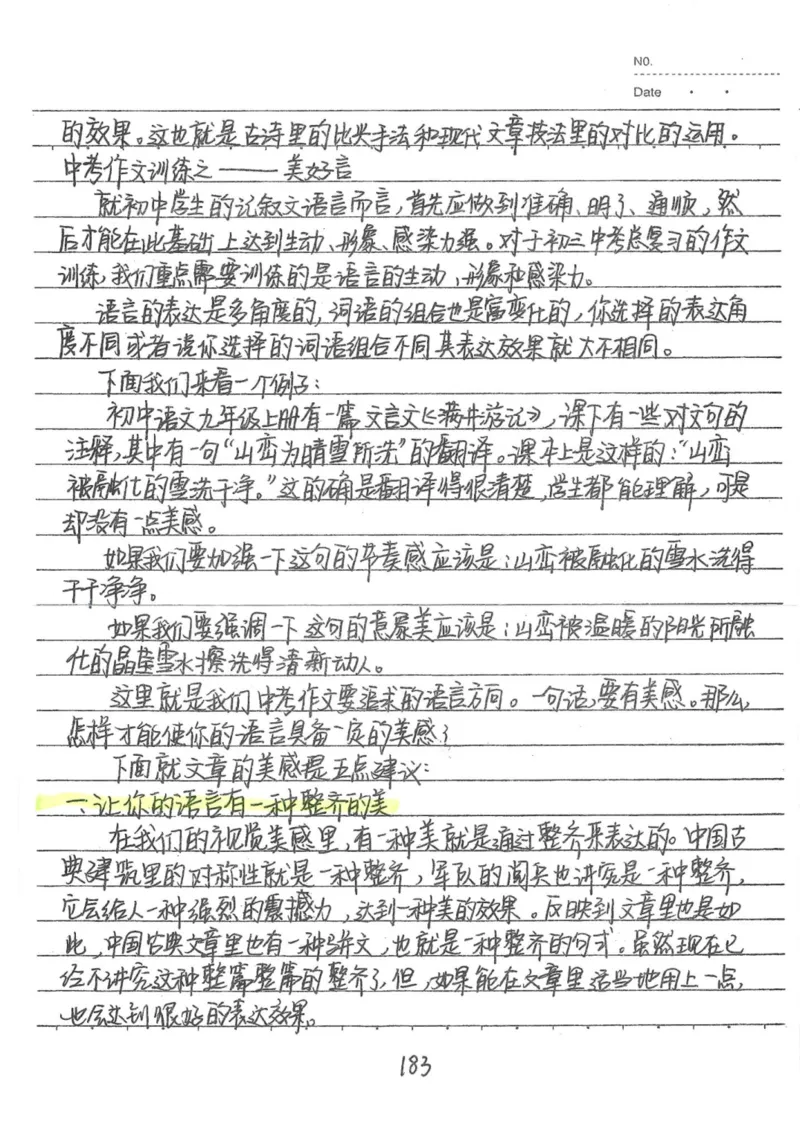 NO.
Date
的效果。这也就是古诗里的比兴手法和现代文章技法里的对比的运用。
中考作文训练之——美好言
就初中学生的记叙文语言而言,首先应做到准确、明了、通顺,然
后才能在此基础上达到生动、形象、感染力强。对于初三中考总复习的作文
训练,我们重点需要训练的是语言的生动、形象和感染力。
语言的表达是多角度的,词语的组合也是富变化的,你选择的表达角
度不同或者说你选择的词语组合不同其表达效果就大不相同。
下面我们来看一个例子:
初中语文九年级上册有一篇文言文《满井游记》,课下有一些对文句的
注释,其中有一句“山峦为晴雪所洗”的翻译。课本上是这样的:“山峦
被融化的雪洗干净。”这的确是翻译得很清楚,学生都能理解,可是
却没有一点美感。
如果我们要加强一下这句的节奏感应该是:山峦被融化的雪水洗得
干干净净。
如果我们要强调一下这句的意象美应该是:山峦被温暖的阳光所融
化的晶莹雪水擦洗得清新动人。
这里就是我们中考作文要追求的语言方向。一句话,要有美感。那么,
怎样才能使你的语言具备一定的美感?
下面就文章的美感提五点建议:
一、让你的语言有一种整齐的美
在我们的视觉美感里,有一种美就是通过整齐来表达的。中国古
典建筑里的对称性就是一种整齐,军队的阅兵也讲究是一种整齐,
它会给人一种强烈的震撼力,达到一种美的效果。反映到文章里也是如
此,中国古典文章里也有一种骈文,也就是一种整齐的句式。虽然现在已
经不讲究这种整篇整篇的整齐了,但,如果能在文章里适当地用上一点,
也会达到很好的表达效果。
183